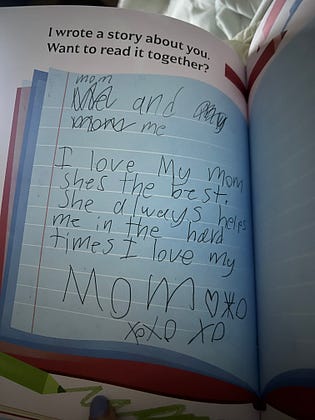 I wrote a story about you.
Want to read it together?
mom
and
me
I love My mom
shes the best.
She always helps
me in the hard
times I love my
MOM♡*O
XOXO XO